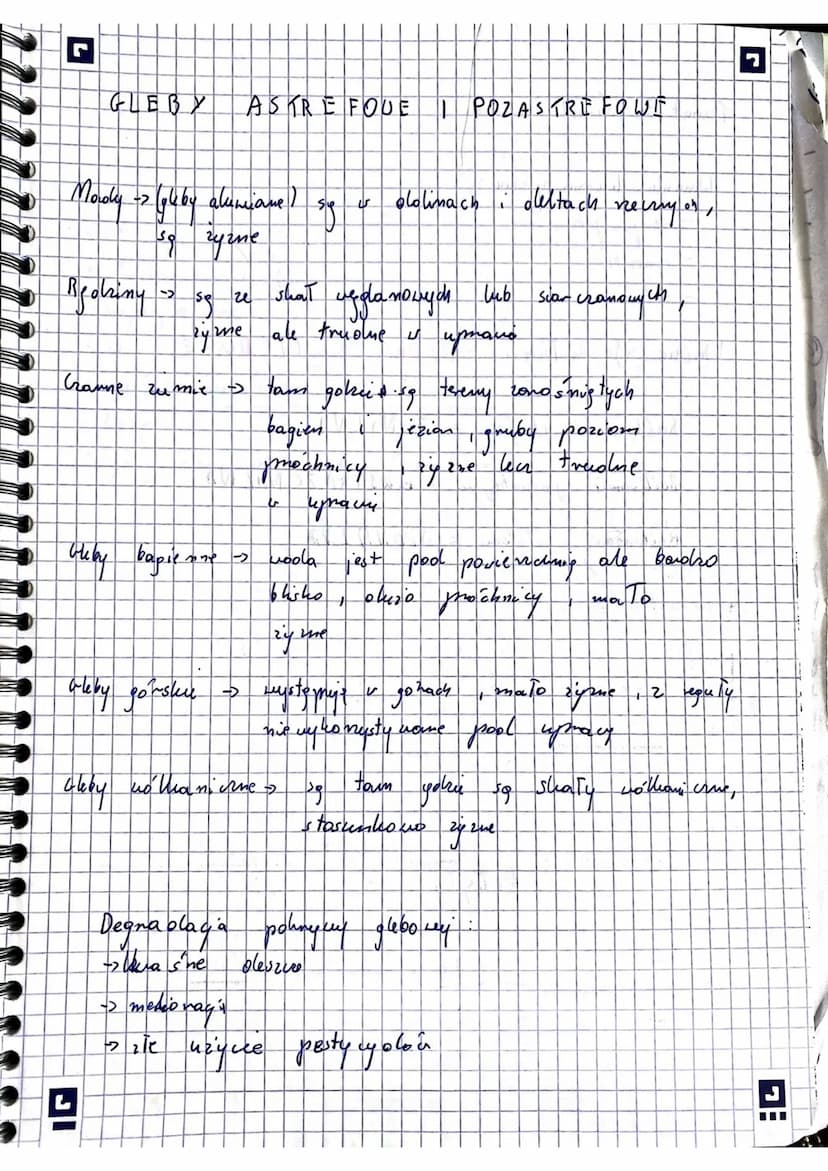 GLEBY ASTREFOWE I POZASTREFOWE
Mady -> (gleby aluwialne) są w dolinach i deltach rzecznych,
są żyzne
Rędziny -> są ze skał węglanowych lub siarczanowych,
żyzne ale trudne w uprawie
Czarne ziemie -> tam gdzie są tereny zarośniętych
bagien i jezior, gruby poziom
próchnicy, żyzne lecz trudne
w uprawie
Gleby bagienne -> woda jest pod powierzchnią ale bardzo
blisko, dużo próchnicy, mało
żyzne
Gleby górskie -> występują w górach, mało żyzne, z reguły
niewykorzystywane pod uprawy
Gleby wólkaniczne -> są tam gdzie są skały wólkaniczne,
stosunkowo żyzne
Degradacja pokrywy glebowej:
-> kwaśne deszcze
-> melioracja
-> złe użycie pestycydów